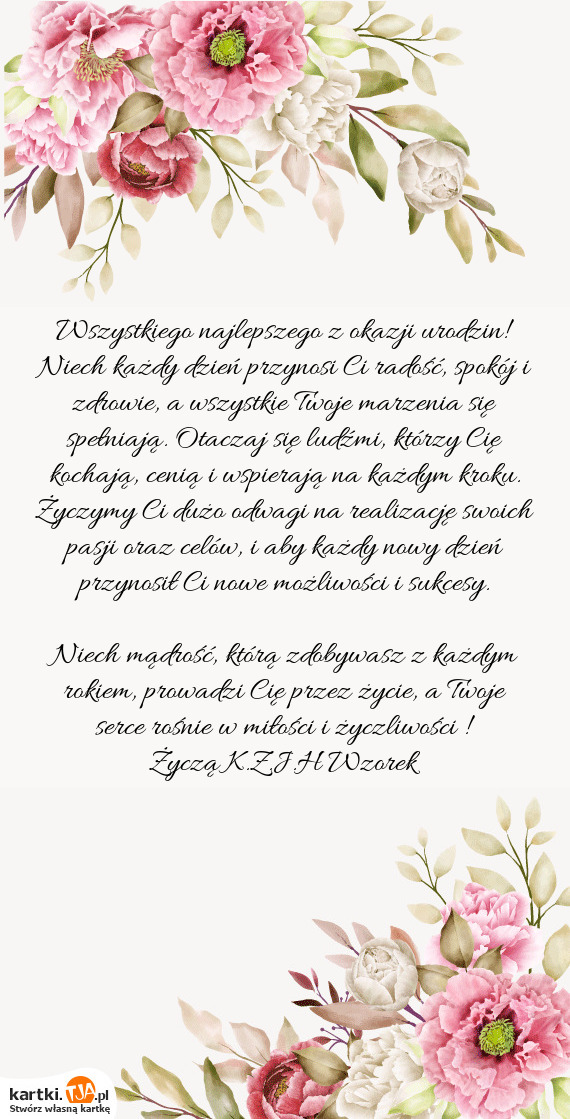 Wszystkiego najlepszego z okazji urodzin!
Niech każdy dzień przynosi Ci radość, spokój i
zdrowie, a wszystkie Twoje marzenia się
spełniają. Otaczaj się ludźmi, którzy Cię
kochają, cenią i wspierają na każdym kroku.
Życzymy Ci dużo odwagi na realizację swoich
pasji oraz celów, i aby każdy nowy dzień
przynosił Ci nowe możliwości i sukcesy.
Niech mądrość, którą zdobywasz z każdym
rokiem, prowadzi Cię przez życie, a Twoje
serce rośnie w miłości i życzliwości !
Życzą K.Z.J.H Wzorek
kartki.TJA.pl
Stwórz własną kartkę